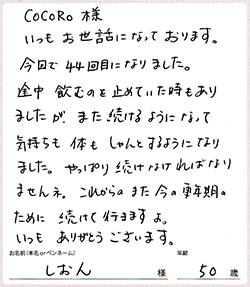 COCORO 様
いつも お世話になって おります。
今回で 44回目になりました。
途中 飲むのを止めていた時もあり
ましたが、また続けるようになって
気持ちも 体も しゃんとするようになり
ました。やっぱり続けなければなり
ませんネ。これからもまた今の更年期の
ために 続けて行きますよ。
いつも ありがとうございます。
お名前(本名orペンネーム) 年齢
しおん 様 50 歳